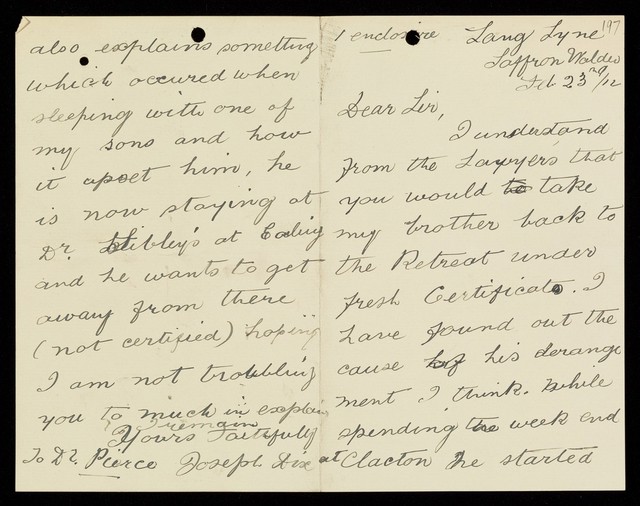 197
1 enclosure Lang Lyne
Saffron Walden
Feb 23rd/12
Dear Sir,
I understand
from the Lawyers that
you would take
my brother back to
the Retreat under
fresh Certificate. I
have found out the
cause of his derange
ment I think. While
spending the week end
at Clacton he started
also explains something
which occured when
sleeping with one of
my sons and how
it upset him, he
is now staying at
Dr. at Ealing
and he wants to get
away from there
(not certified) hoping
I am not troubling
you to much in explain
I remain
Yours Faithfully
To Dr. Pierce Joseph Dix